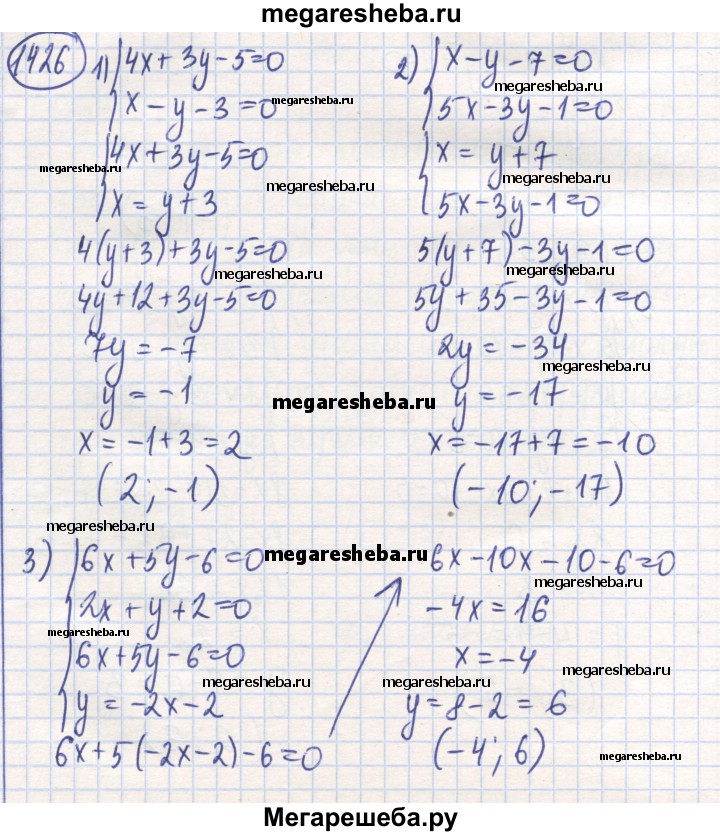 megaresheba.ru
1426
1) 4x + 3y - 5 = 0
x - y - 3 = 0 megaresheba.ru
megaresheba.ru 4x + 3y - 5 = 0
megaresheba.ru
x = y + 3
4(y + 3) + 3y - 5 = 0
megaresheba.ru
4y + 12 + 3y - 5 = 0
7y = -7
y = -1
megaresheba.ru
x = -1 + 3 = 2
(2; -1)
megaresheba.ru
2) x - y - 7 = 0
megaresheba.ru
5x - 3y - 1 = 0
x = y + 7
megaresheba.ru
5x - 3y - 1 = 0
5(y + 7) - 3y - 1 = 0
megaresheba.ru
5y + 35 - 3y - 1 = 0
2y = -34
megaresheba.ru
y = -17
x = -17 + 7 = -10
(-10; -17)
3) 6x + 5y - 6 = 0 megaresheba.ru
2x + y + 2 = 0
megaresheba.ru
6x + 5y - 6 = 0
megaresheba.ru
y = -2x - 2
megaresheba.ru
6x + 5(-2x - 2) - 6 = 0
6x - 10x - 10 - 6 = 0
megaresheba.ru
-4x = 16
x = -4
megaresheba.ru
y = 8 - 2 = 6
(-4; 6)
megaresheba.ru
Мегарешеба.ру